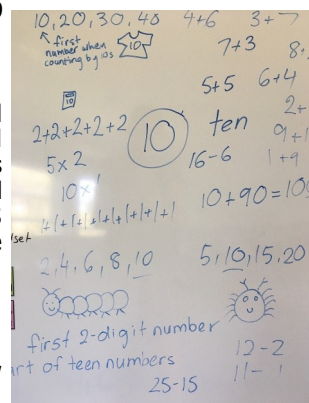 10, 20, 30, 40
first
number when
counting by 10s
10
4+6
3+7
7+3
8+
10
5+5
6+4
2+2+2+2+2
10
ten
2+
9+1
5x2
16-6
1+9
10x1
10+90=10
1+1+1+1+1+1+1+1+1+1
set
2, 4, 6, 8, 10
5, 10, 15, 20
first 2-digit number
art of teen numbers
12-2
11-1
25-15